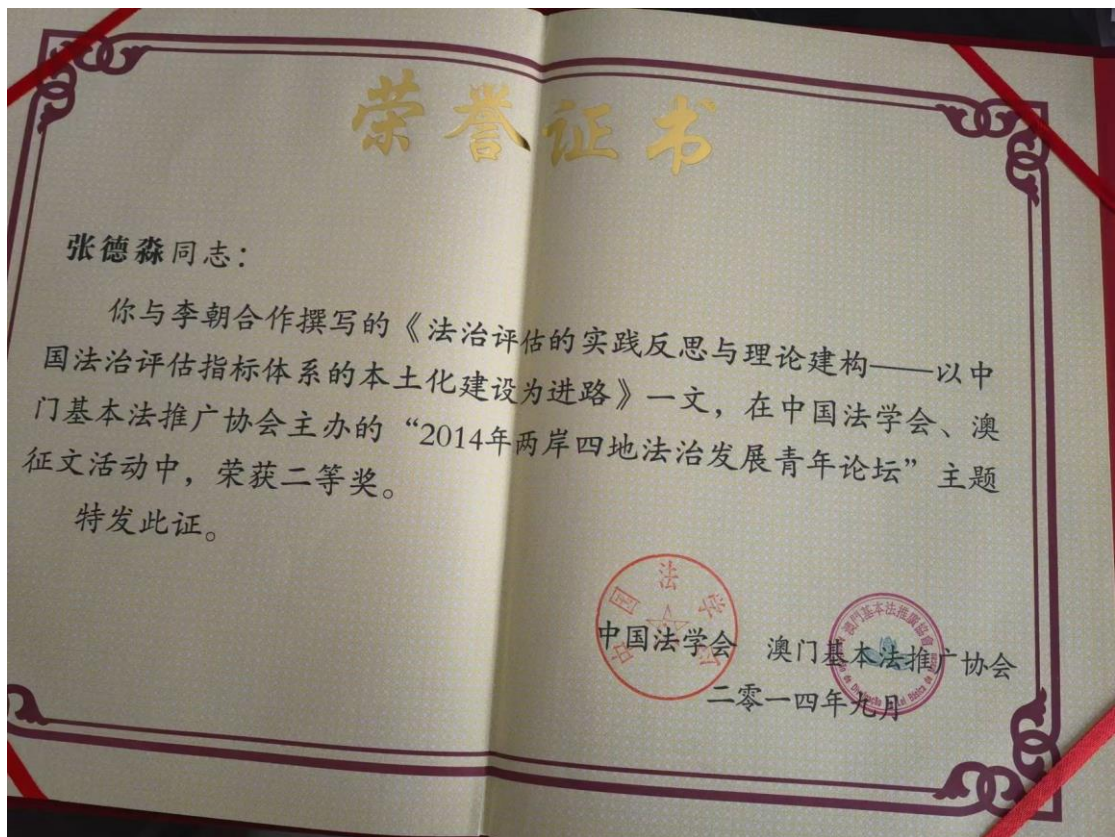 荣誉证书
张德淼同志：
你与李朝合作撰写的《法治评估的实践反思与理论建构——以中
国法治评估指标体系的本土化建设为进路》一文，在中国法学会、澳
门基本法推广协会主办的“2014年两岸四地法治发展青年论坛”主题
征文活动中，荣获二等奖。
特发此证。
中国法学会
澳門基本法推廣協會
中国法学会 澳门基本法推广协会
二零一四年九月